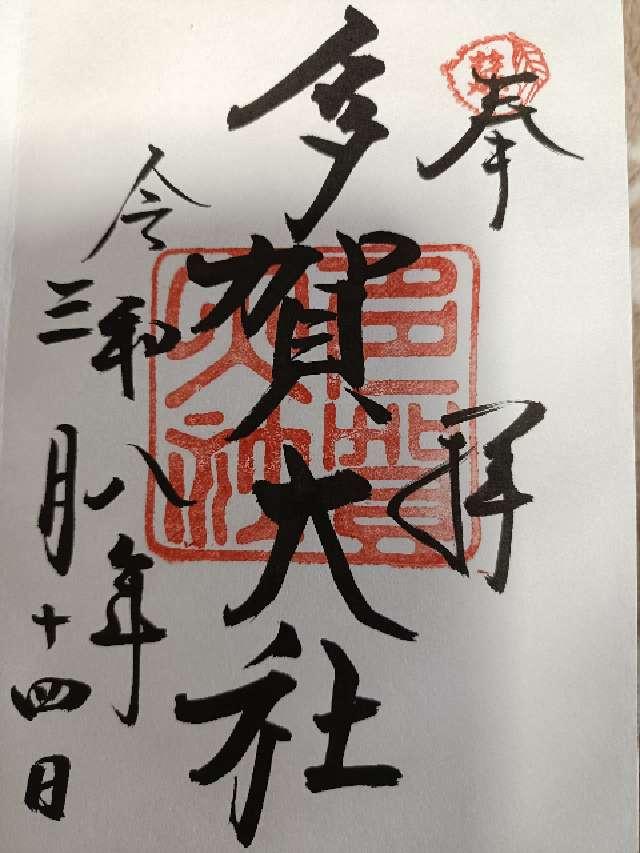 奉拝
多賀大社
令和八年
三月十四日
多賀大社